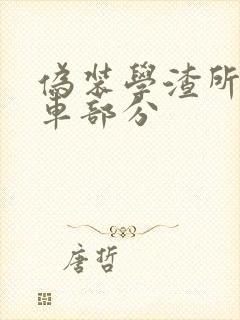 偽装學渣所
車部分
唐哲